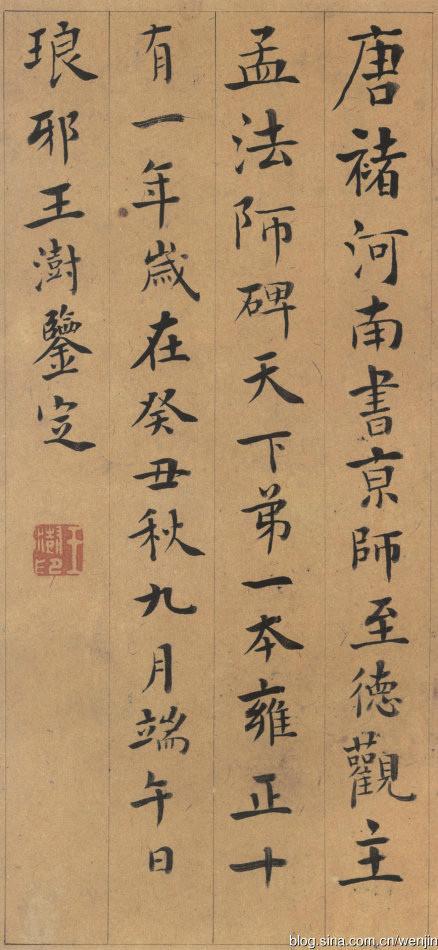 唐褚河南書京師至德觀主
孟法師碑天下弟一本雍正十
有一年歲在癸丑秋九月端午日
琅邪王澍鑒定
王澍印
blog.sina.com.cn/wenjin